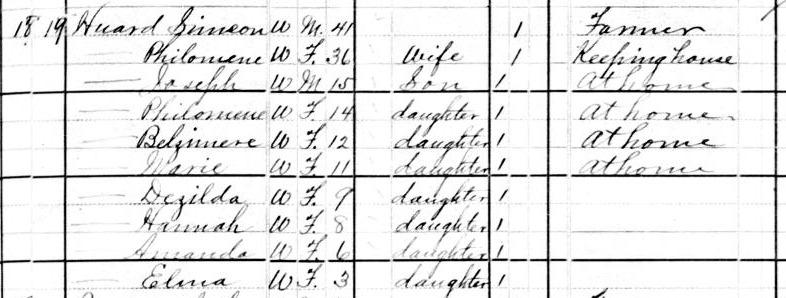 18 19 Huard Simeon W M. 41 1 Farmer
— Philomene W F. 36 Wife 1 Keeping house
— Joseph W M 15 Son 1 At home
— Philomene W F. 14 daughter 1 At home
— Belzimere W F. 12 daughter 1 At home
— Marie W F. 11 daughter 1 At home
— Dezilda W F. 9 daughter 1
— Hannah W F. 8 daughter 1
— Amanda W F. 6 daughter 1
— Elma W F. 3 daughter 1